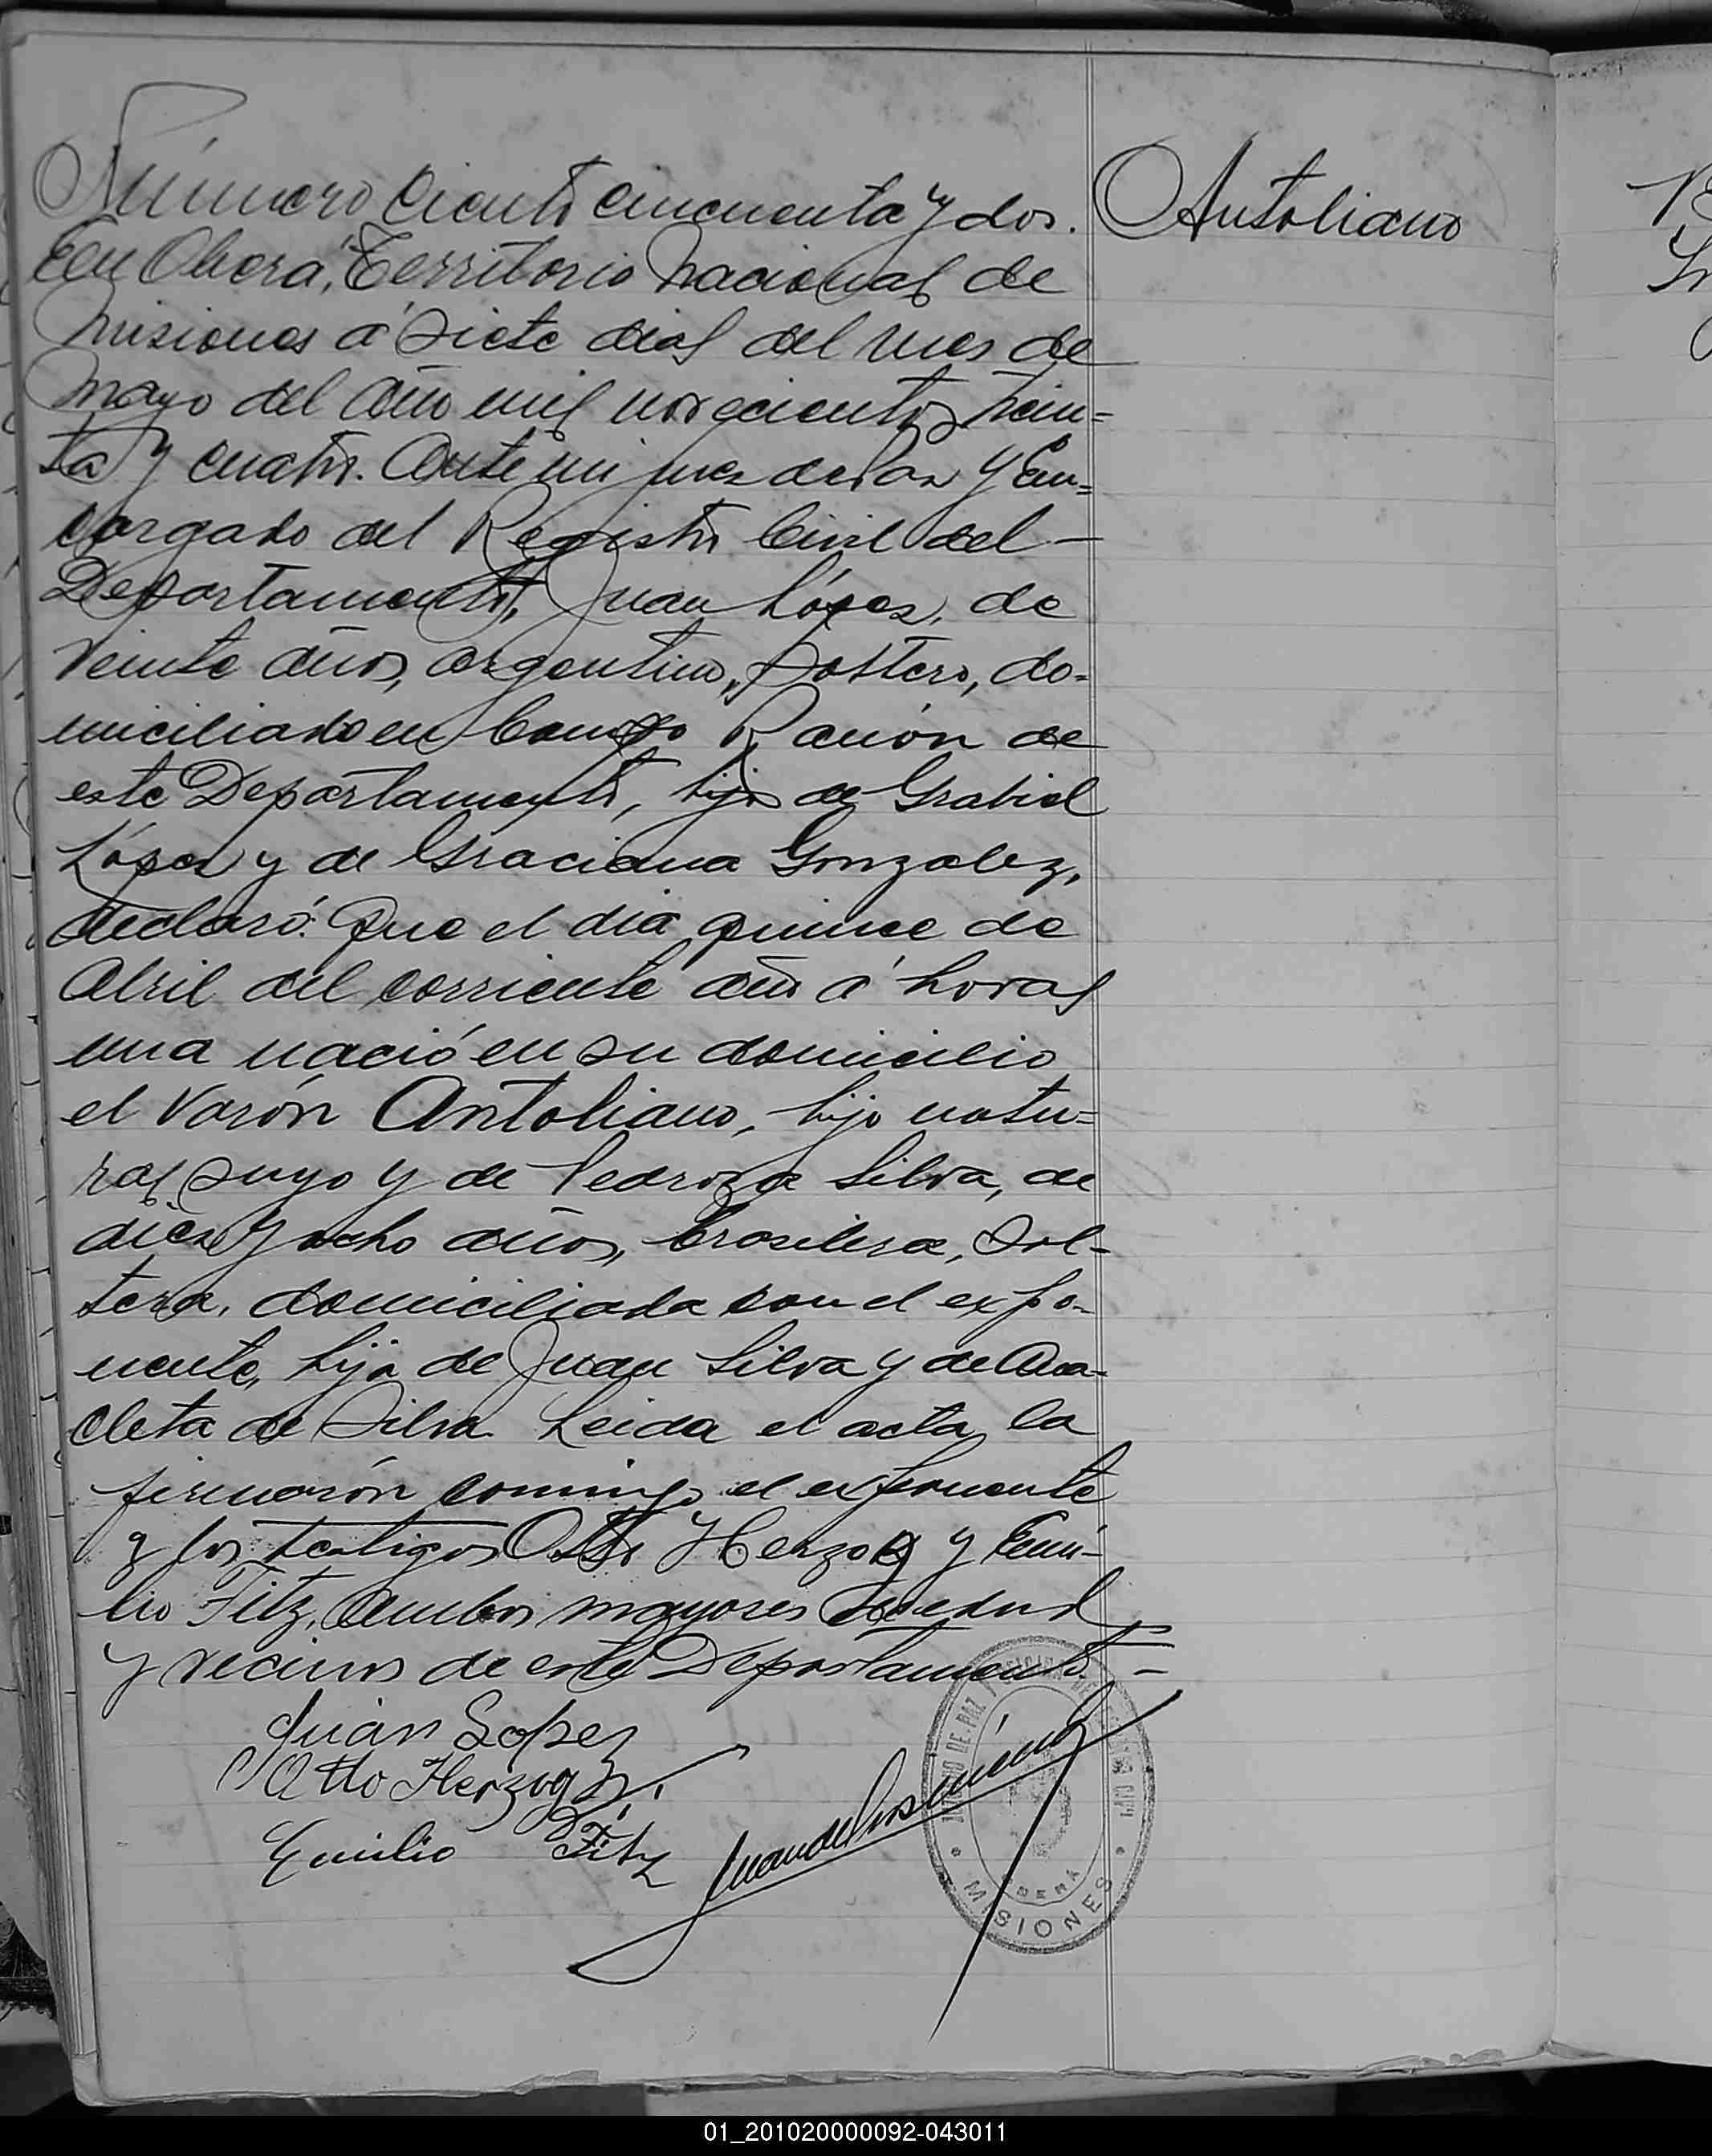 Número Ciento cincuenta y dos.
Antoliano
En Oberá, Territorio Nacional de
Misiones á siete dias del mes de
Mayo del año mil novecientos trein=
ta y cuatro. Ante mi juez de Paz y En=
cargado del Registro Civil del —
Departamento, Juan López, de
veinte años, argentino, soltero, do=
miciliado en Campo Ramón de
este Departamento, hijo de Grabiel
López y de Graciana Gonzalez,
declaró: Que el dia quince de
Abril del corriente año á horas
una nació en su domicilio
el varón Antoliano, hijo natu=
ral suyo y de Pedroza Silva, de
diez y ocho años, brasilera, sol-
tera, domiciliada con el expo-
nente, hija de Juan Silva y de Ana-
cleta de Silva. Leida el acta la
firmarón conmigo el exponente
y los testigos Otto Herzog y Emi-
lio Fitz, ambos mayores de edad
y vecinos de este Departamento. =
Juan Lopez
Otto Herzog
Emilio Fitz
JUZGADO DE PAZ
OBERÁ
MISIONES
01_201020000092-043011